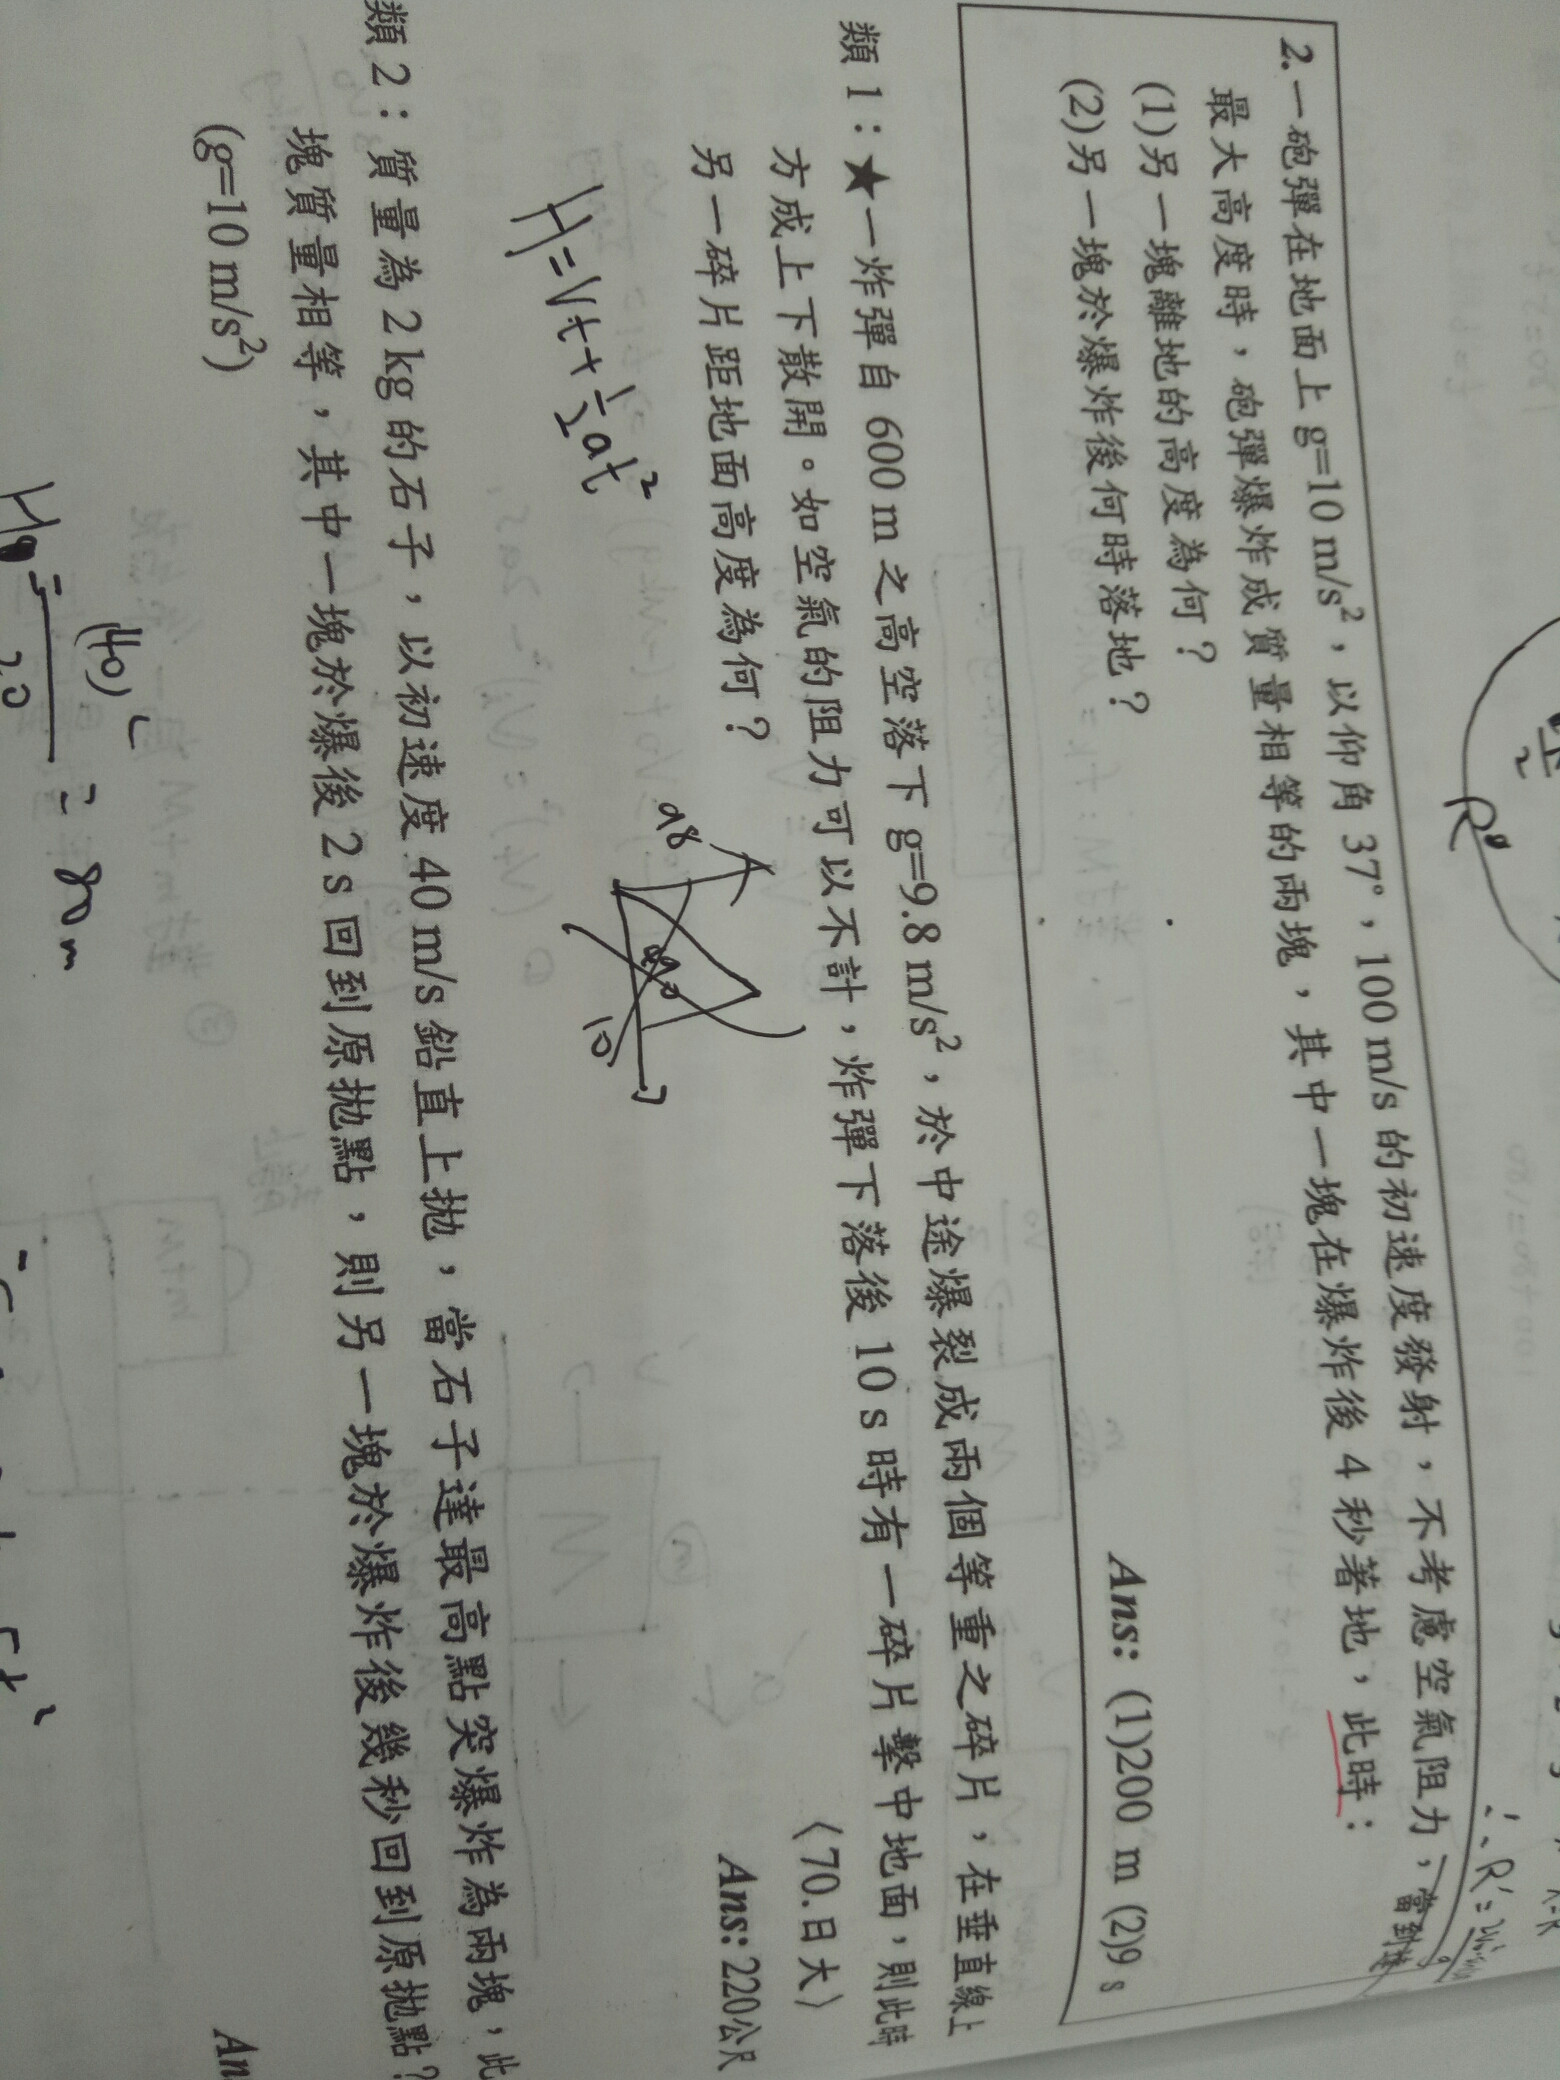 2.一砲彈在地面上 g=10 m/s²，以仰角 37°，100 m/s 的初速度發射，不考慮空氣阻力，當到達
最大高度時，砲彈爆炸成質量相等的兩塊，其中一塊在爆炸後 4 秒著地，此時：
(1)另一塊離地的高度為何？
(2)另一塊於爆炸後何時落地？
Ans: (1)200 m (2)9 s
類 1：★一炸彈自 600 m 之高空落下 g=9.8 m/s²，於中途爆裂成兩個等重之碎片，在垂直線上
方成上下散開。如空氣的阻力可以不計，炸彈下落後 10 s 時有一碎片擊中地面，則此時
另一碎片距地面高度為何？
〈70.日大〉
Ans: 220公尺
H=Vt+½at²
98
10
類 2：質量為 2 kg 的石子，以初速度 40 m/s 鉛直上拋，當石子達最高點突爆炸為兩塊，此
塊質量相等，其中一塊於爆後 2 s 回到原拋點，則另一塊於爆炸後幾秒回到原拋點？
(g=10 m/s²)
An
(40)²
20
= 80m